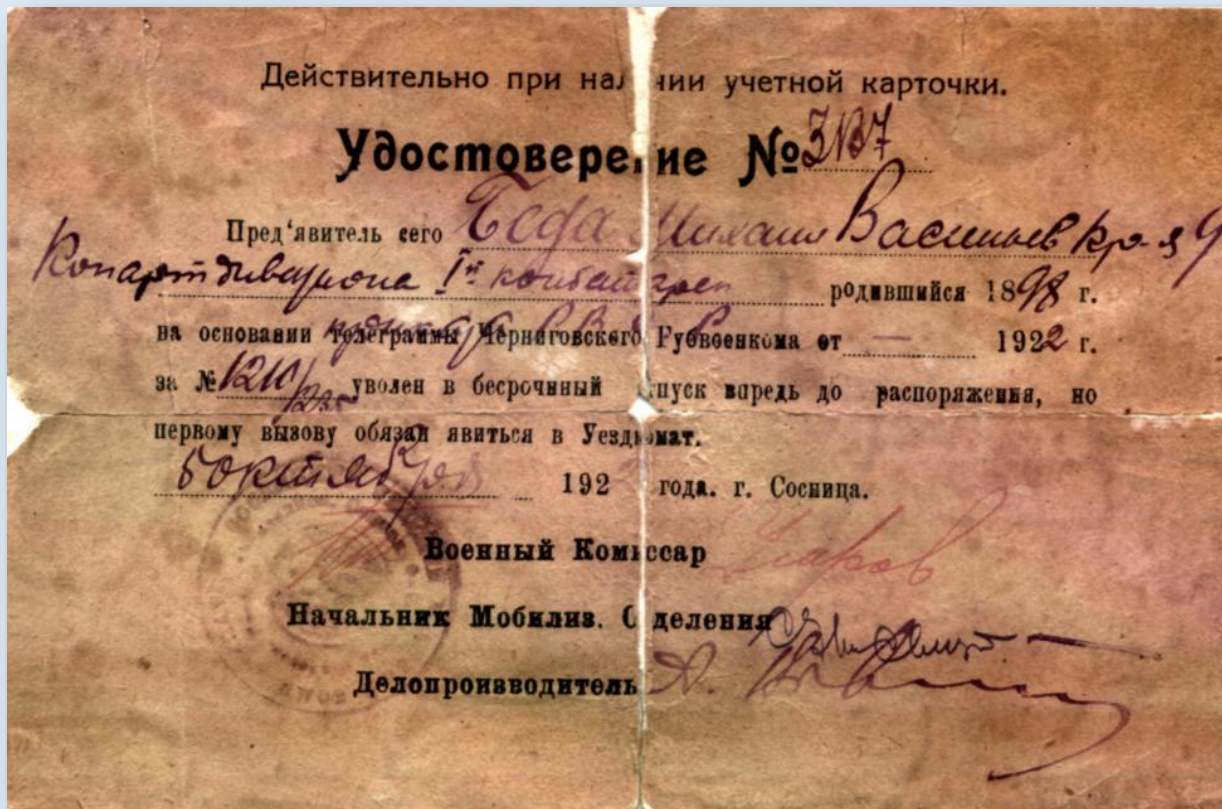 Действительно при нал чии учетной карточки.
Удостовере ие №
Пред'явитель сего Беда Михаил Васильев кр-я
родившийся 1898 г.
на основании телеграммы Черниговского Губвоенкома от — 1922 г.
за № 1210 уволен в бесрочнный пуск впредь до распоряжения, но
первому вызову обязан явиться в Уезд мат.
5 октября 192 года. г. Сосница.
Военный Комиссар
Начальник Мобилиз. О деления
Делопроизводитель